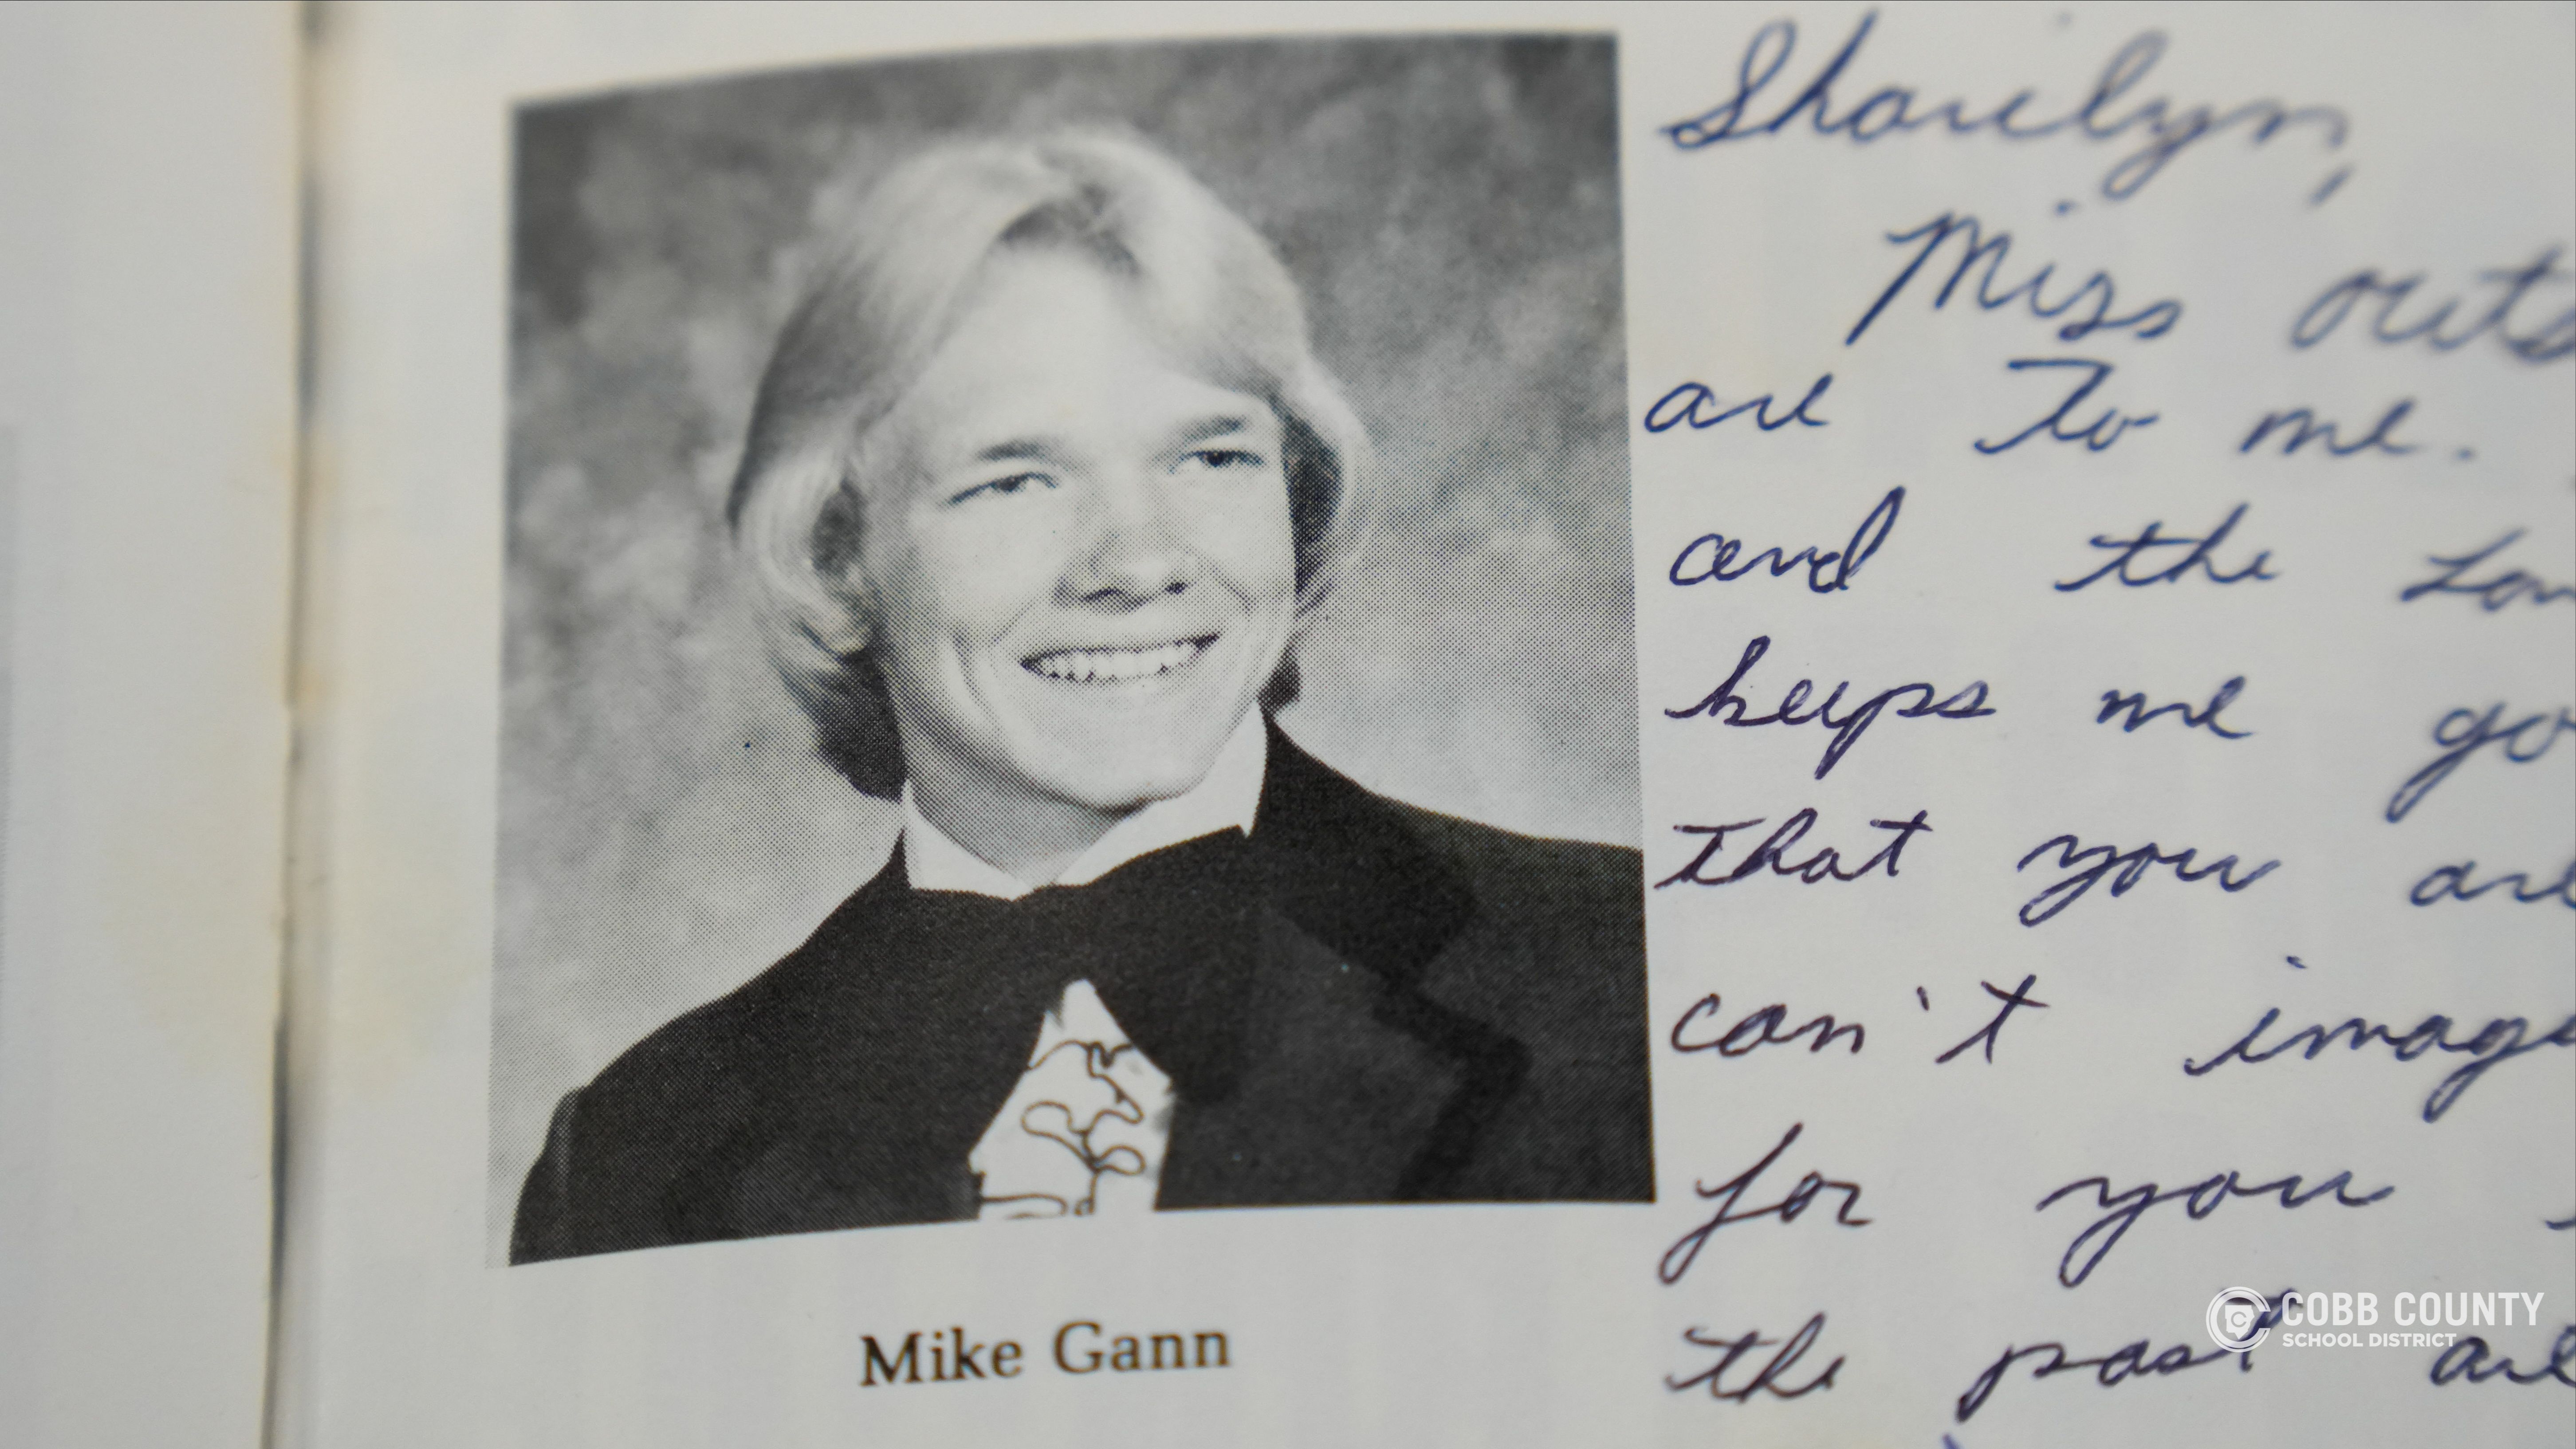 Sharilyn,
Miss outs
are To me.
and the Lo
keeps me go
that you are
can't imag
for you
the past are
Mike Gann
COBB COUNTY
SCHOOL DISTRICT